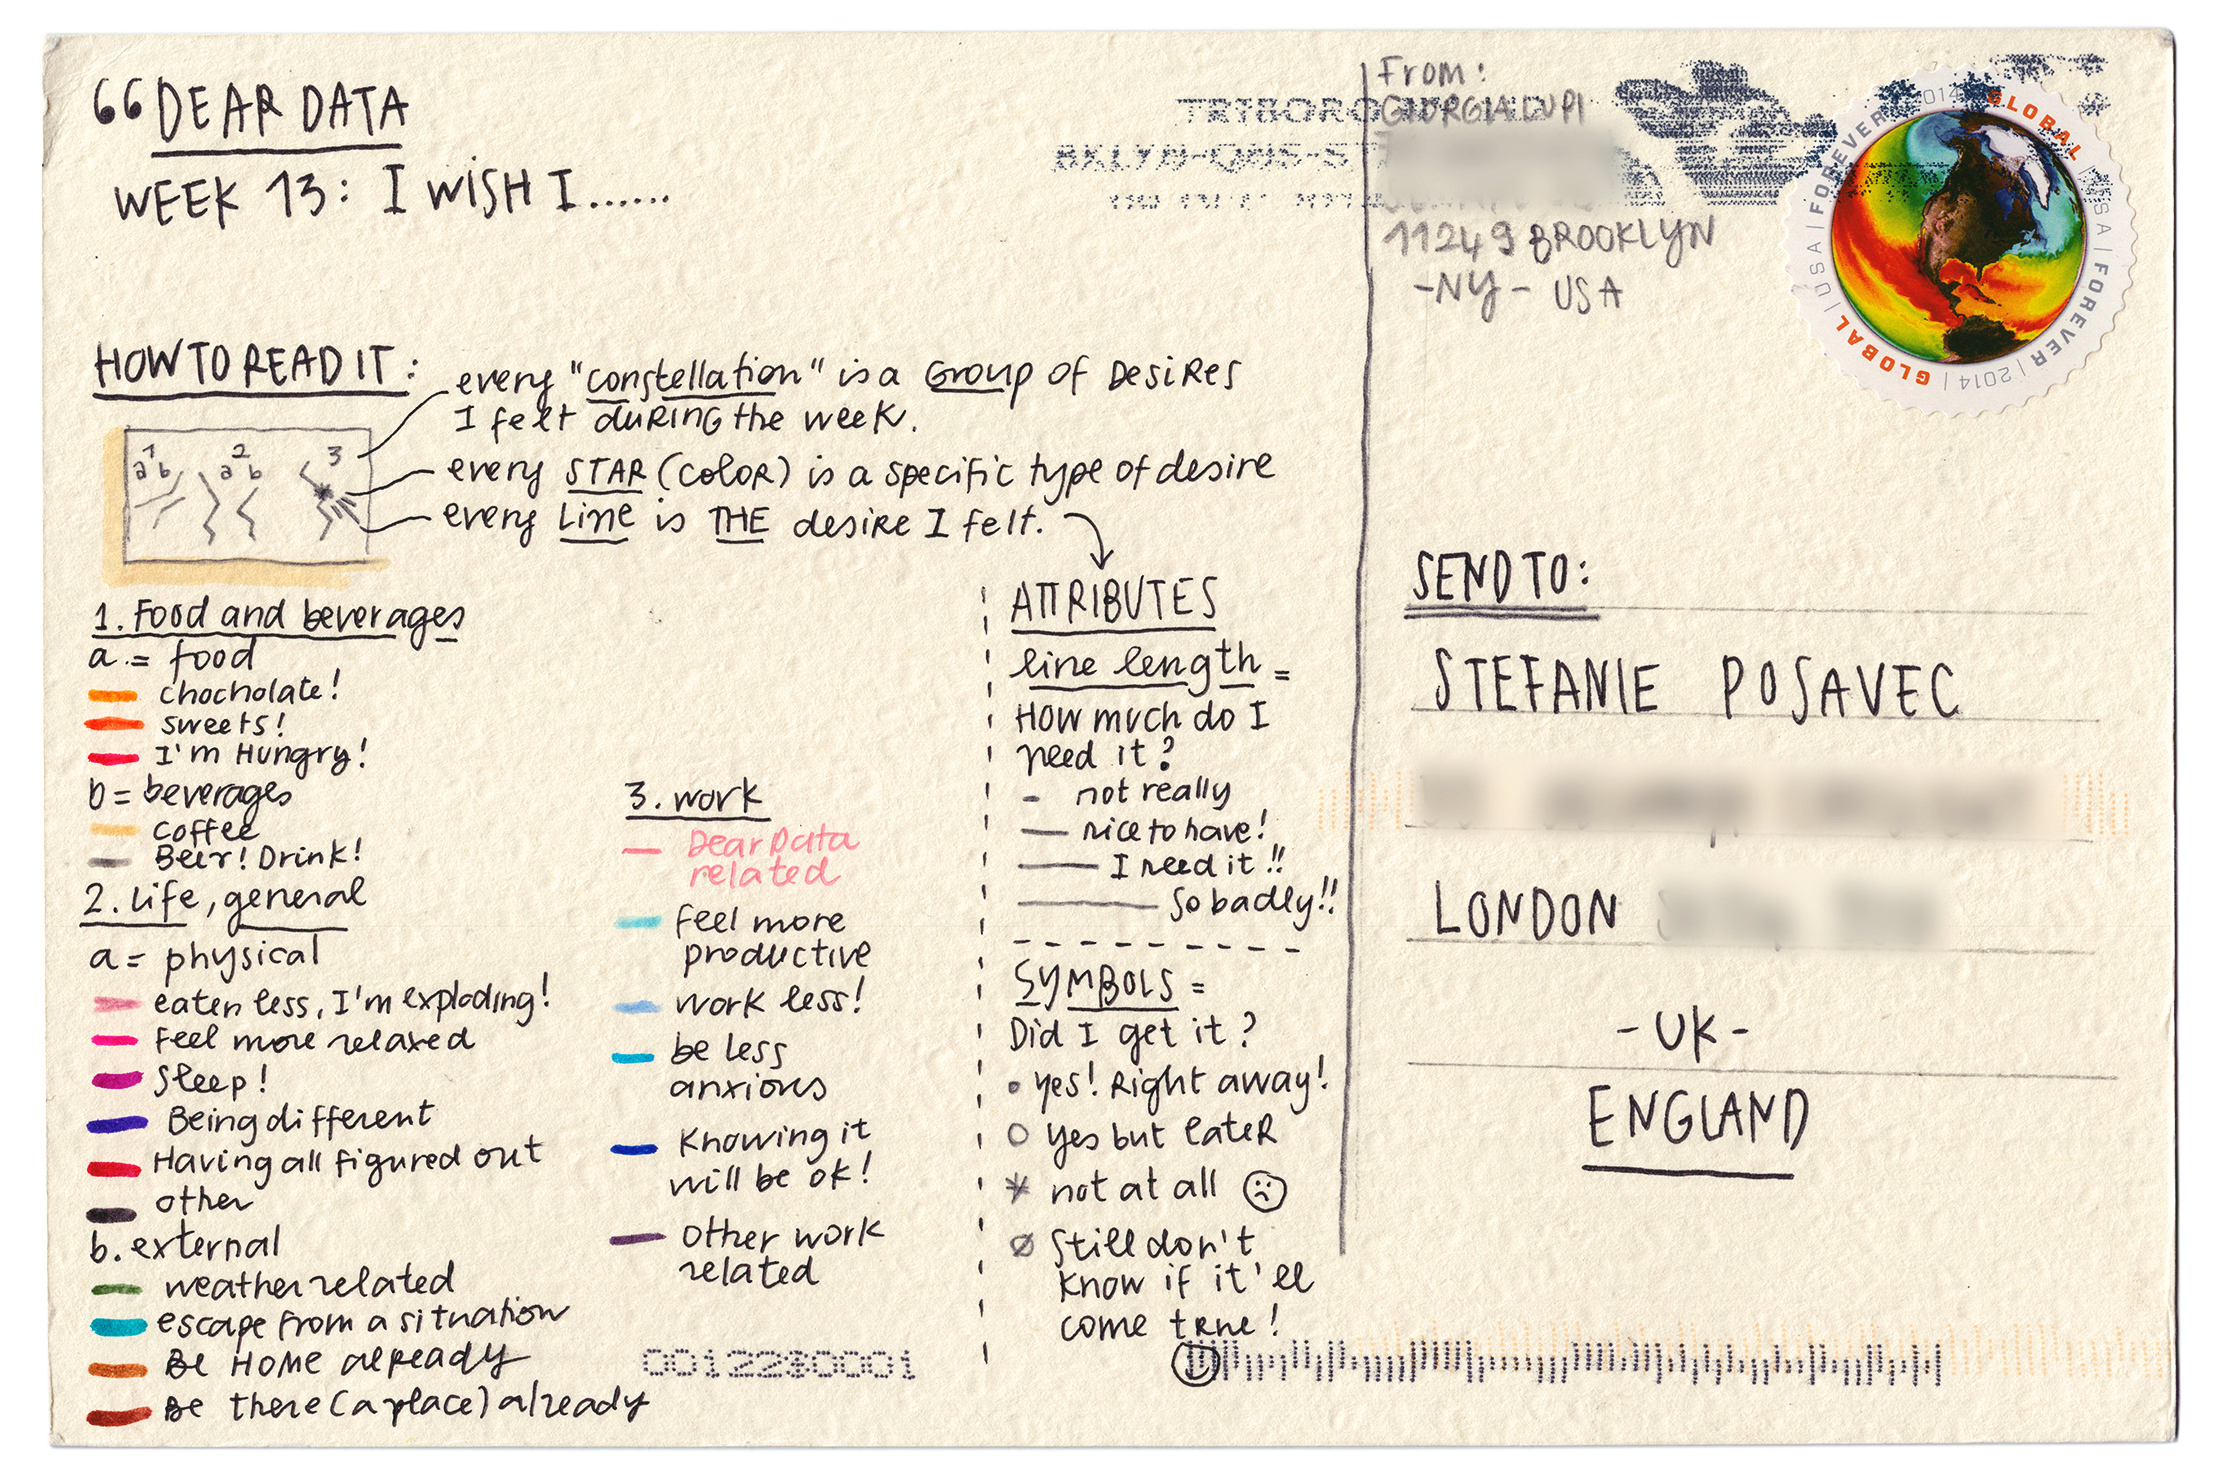 66 DEAR DATA
WEEK 13: I WISH I......
HOW TO READ IT:
every "constellation" is a GROUP OF DESIRES
I felt DURING the week.
every STAR (COLOR) is a specific type of desire
every LINE is THE desire I felt.
1 2 3
a b a b
1. Food and beverages
a.= food
chocholate!
sweets!
I'm Hungry!
b= beverages
coffee
Beer! Drink!
2. Life, general
a= physical
eaten less, I'm exploding!
Feel more relaxed
Sleep!
Being different
Having all figured out
other
b. external
weather related
escape from a situation
Be HOME alREADY
Be there (a place) already
3. work
Dear Data
related
Feel more
productive
work less!
be less
anxious
Knowing it
will be ok!
other work
related
ATTRIBUTES
line length =
How much do I
need it?
not really
nice to have!
I need it!!
So badly!!
SYMBOLS =
Did I get it?
yes! Right away!
yes but later
not at all
Still don't
know if it'll
come true!
0012230001
From:
GIORGIA LUPI
11249 BROOKLYN
-NY- USA
TRIBORO
BKLYN-QNS-ST
GLOBAL | USA | FOREVER | 2014 | GLOBAL | USA | FOREVER | 2014
SEND TO:
STEFANIE POSAVEC
LONDON
-UK-
ENGLAND